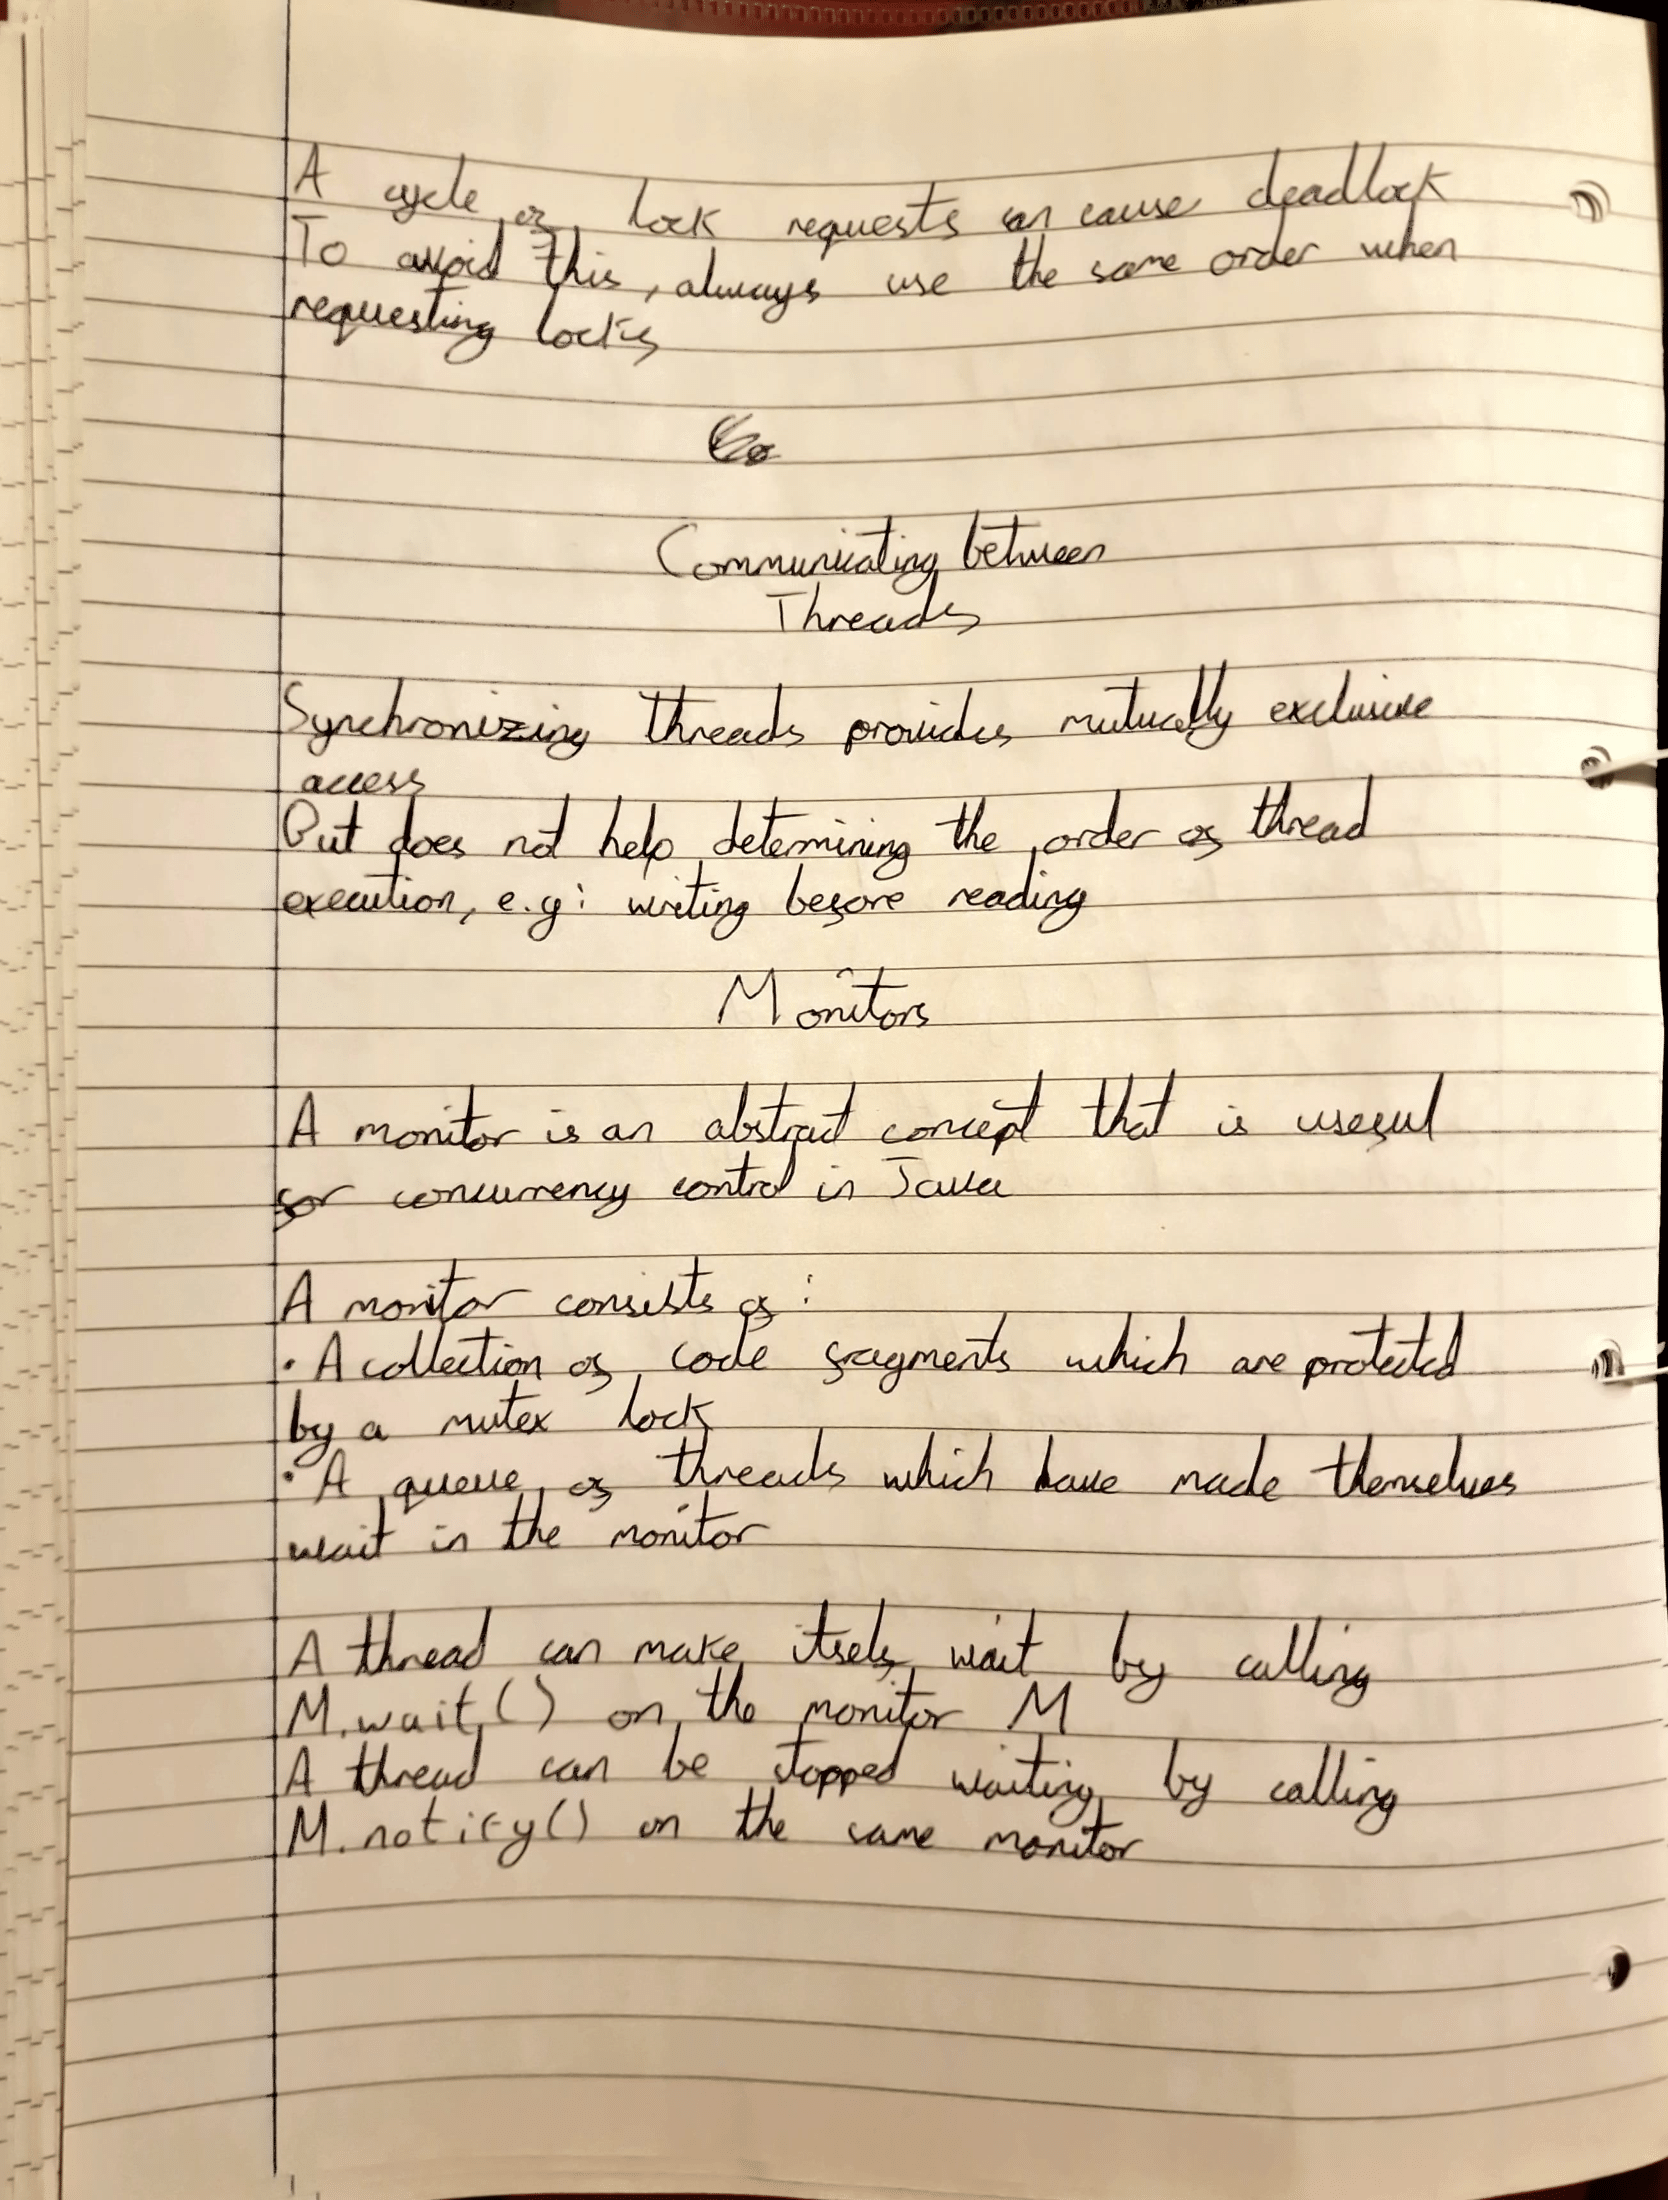 A cycle of lock requests can cause deadlock
To avoid this, always use the same order when
requesting locks
Communicating between
Threads
Synchronizing threads provides mutually exclusive
access
But does not help determining the order of thread
execution, e.g: writing before reading
Monitors
A monitor is an abstract concept that is useful
for concurrency control in Java
A monitor consists of:
• A collection of code fragments which are protected
by a mutex lock
• A queue of threads which have made themselves
wait in the monitor
A thread can make itself wait by calling
M.wait() on the monitor M
A thread can be stopped waiting by calling
M.notify() on the same monitor